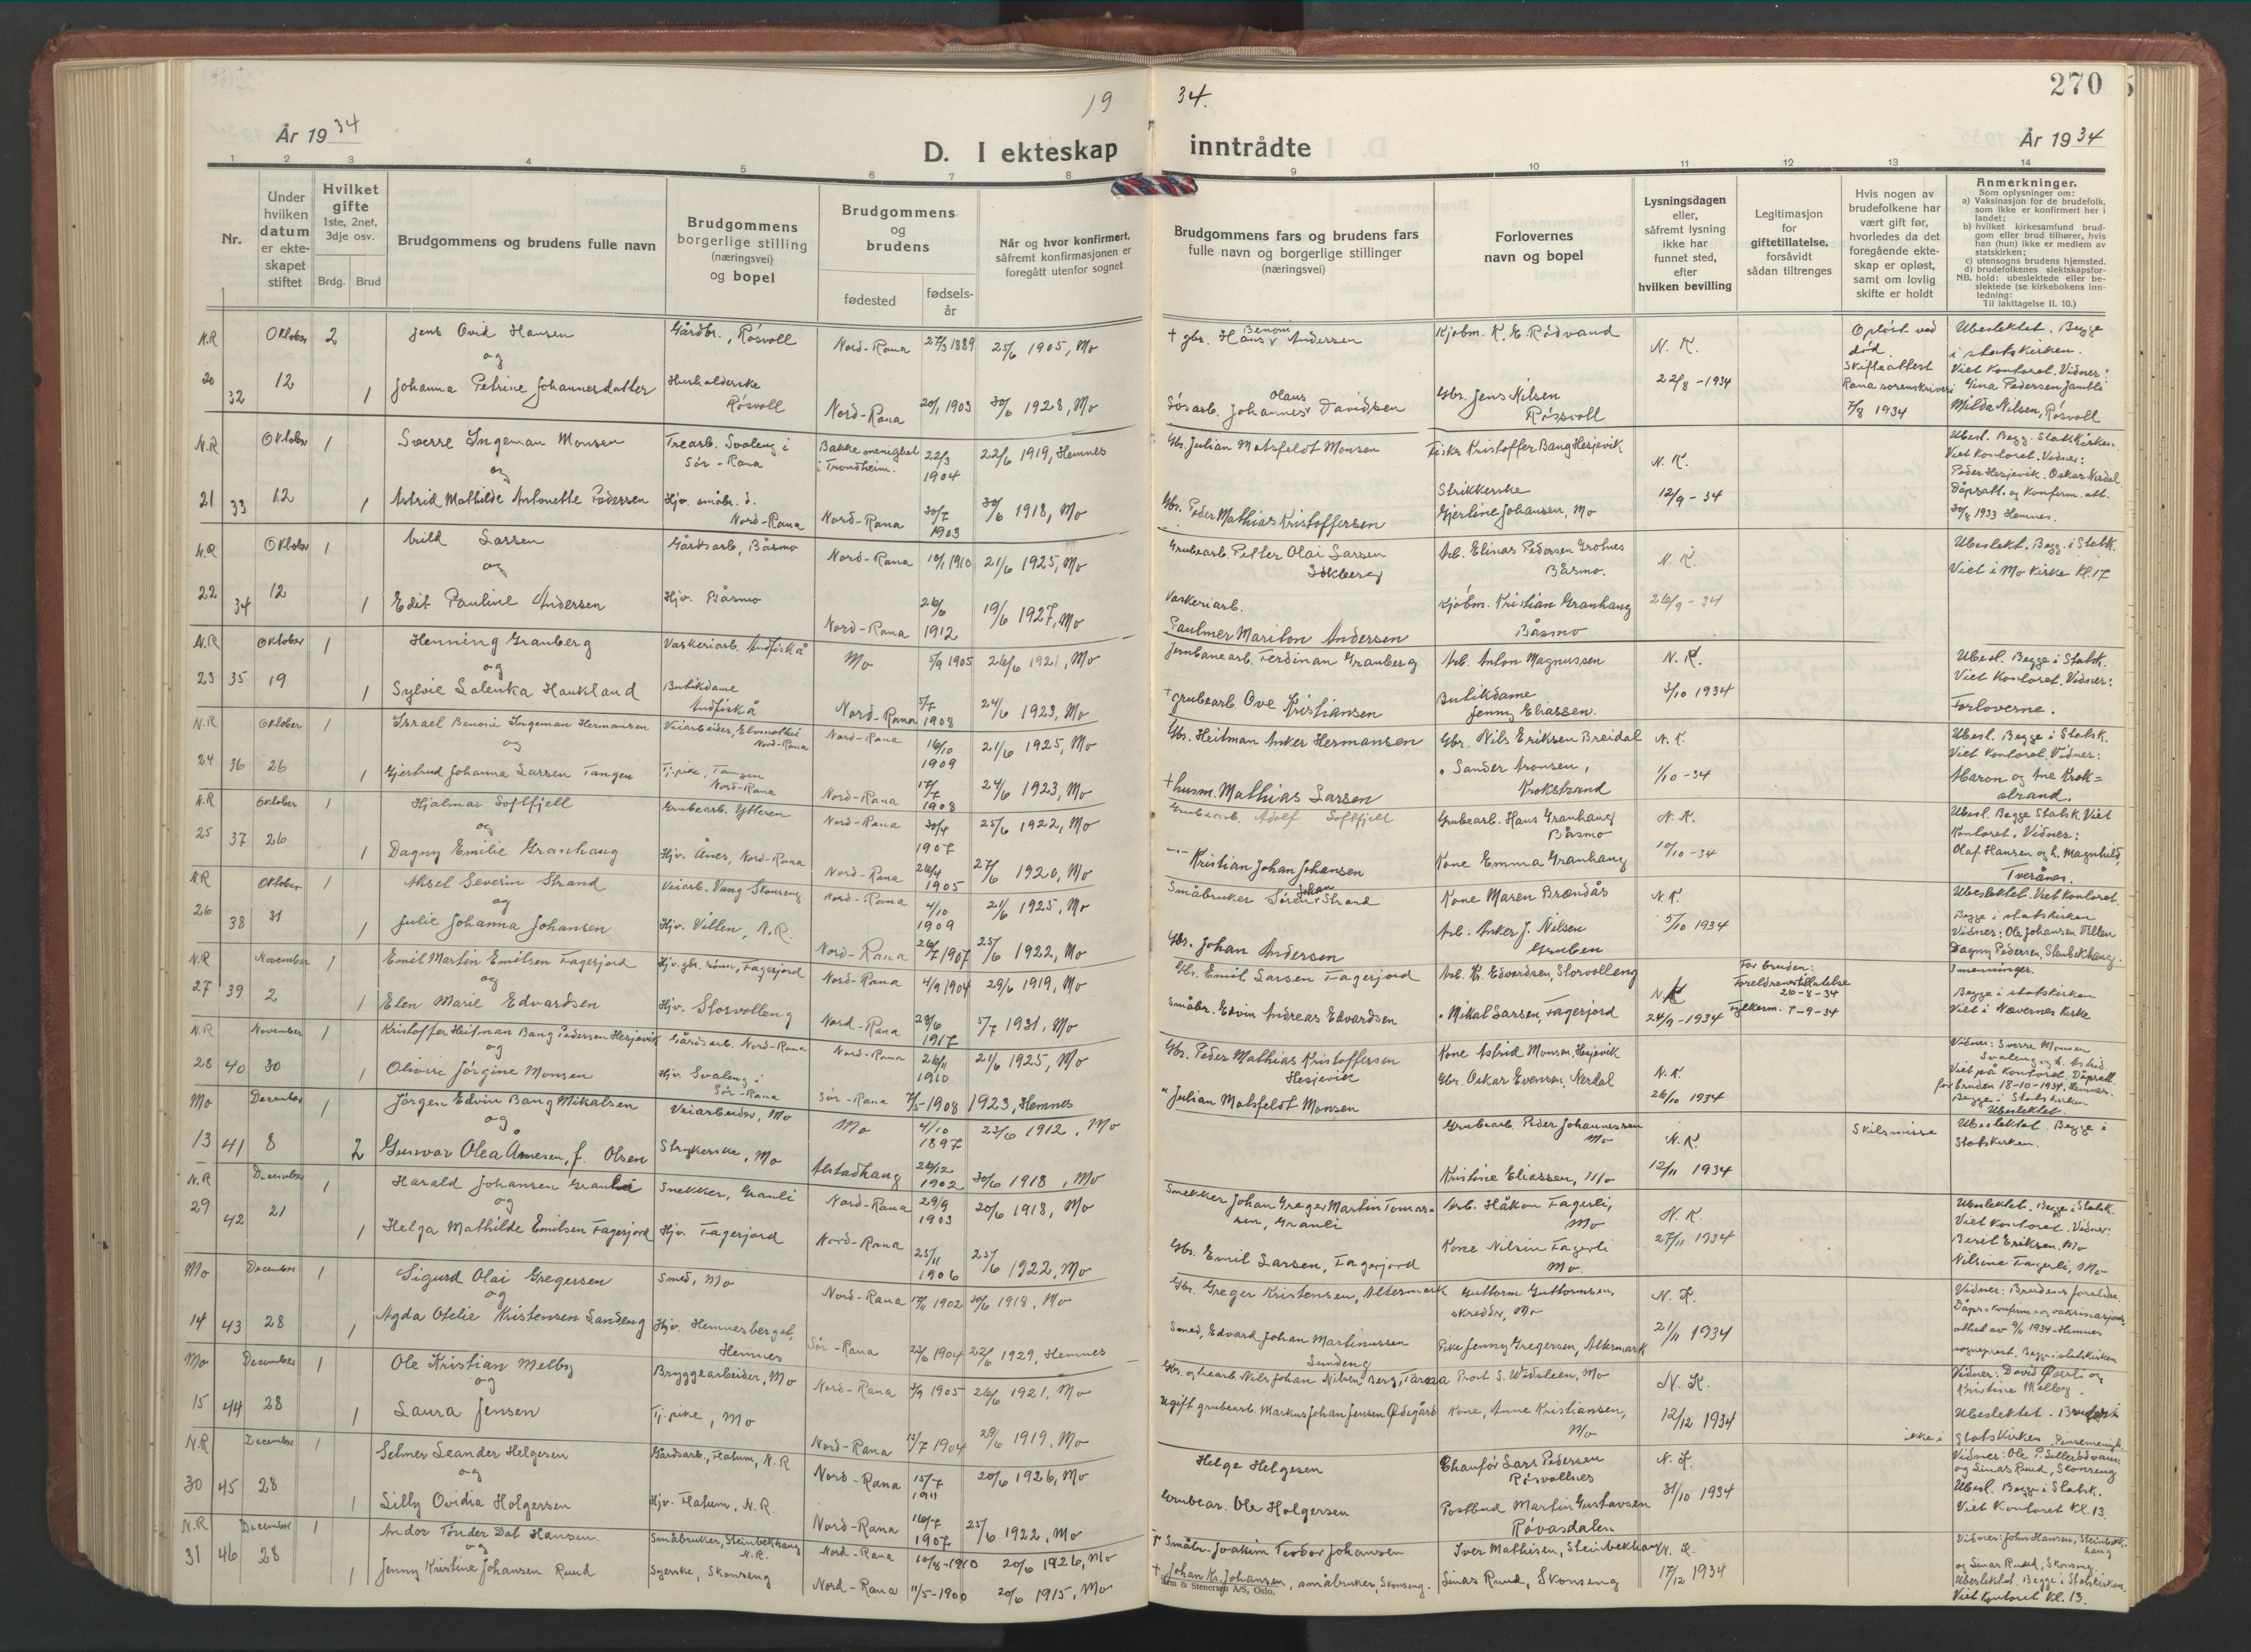 270
19
34.
År 1934
D. I ekteskap
inntrådte
År 1934
1 2 3 4 5 6 7 8 9 10 11 12 13 14
Nr.
Under
hvilken
datum
er ekte-
skapet
stiftet
Hvilket
gifte
1ste, 2net,
3dje osv.
Brdg.
Brud
Brudgommens og brudens fulle navn
Brudgommens
borgerlige stilling
(næringsvei)
og bopel
Brudgommens
og
brudens
fødested
fødsels-
år
Når og hvor konfirmert,
såfremt konfirmasjonen er
foregått utenfor sognet
Brudgommens fars og brudens fars
fulle navn og borgerlige stillinger
(næringsvei)
Forlovernes
navn og bopel
Lysningsdagen
eller,
såfremt lysning
ikke har
funnet sted,
efter
hvilken bevilling
Legitimasjon
for
giftetillatelse,
forsåvidt
sådan tiltrenges
Hvis nogen av
brudefolkene har
vært gift før,
hvorledes da det
foregående ekte-
skap er opløst,
samt om lovlig
skifte er holdt
Anmerkninger.
Som oplysninger om:
a) Vaksinasjon for de brudefolk,
som ikke er konfirmert her i
landet;
b) hvilket kirkesamfund brud-
gom eller brud tilhører, hvis
han (hun) ikke er medlem av
statskirken;
c) utensogns brudens hjemsted.
d) brudefolkenes slektskapsfor-
NB. hold: ubeslektede eller be-
slektede (se kirkebokens inn-
ledning:
Til iakttagelse II. 10.)
N.R 20 32 Oktober 12 2 Jens Ovid Hansen Gårdbr., Røsvoll Nord-Rana 27/3 1889 25/6 1905, Mo
og
1 Johanna Petrine Johannesdatter Husholderske Røsvoll Nord-Rana 20/1 1903 30/6 1928, Mo
† gbr. Hans Benoni Andersen Kjøbm. K. E. Rødvand N. K. 22/8-1934
Søsarb. Johannes Olaus Davidsen Gbr. Jens Nilsen Røssvoll
Opløst ved
død.
Skifteattest
Rana sorenskriveri
7/8 1934
Ubeslektet. Begge
i statskirken.
Viet Kontoret. Vidner:
Gina Pedersen Jamtli
Milda Nilsen, Røsvoll
N.R 21 33 Oktober 12 1 Sverre Ingeman Monsen Trearb. Svaleng i Sør-Rana Bakke menighet i Trondheim. 22/3 1904 22/6 1919, Hemnes
og
1 Astrid Mathilde Antonette Pedersen Hjv. småbr. d. Nord-Rana Nord-Rana 30/7 1903 30/6 1918, Mo
Gbr. Julian Matsfeldt Monsen Fisker Kristoffer Bang Hesjevik N. K. 12/9-34
Gbr. Peder Mathias Kristoffersen Strikkerske Gjertine Johansen, Mo
Ubesl. Begg. Statskirken.
Viet Kontoret. Vidner:
Peder Hesjevik. Oskar Nerdal.
Dåpsatt. og Konferm. att.
30/8 1933 Hemnes.
N.R 22 34 Oktober 12 1 Arild Larsen Gårdsarb, Båsmo Nord-Rana 10/1 1910 21/6 1925, Mo
og
1 Edit Pauline Andersen Hjv. Båsmo Nord-Rana 26/6 1912 19/6 1927, Mo
Grubearb. Petter Olai Larsen Arb. Elinas Pedersen Grotnes Båsmo. N. K. 26/9-34
Vaskeriarb. Paulmer Mariton Andersen Kjøbm. Kristian Granhaug Båsmo
Ubeslekt. Begg. i Statsk.
Viet i Mo Kirke Kl. 17
N.R 23 35 Oktober 19 1 Henning Grauberg Vaskeriarb. Andfiskå Mo 5/9 1905 26/6 1921, Mo
og
1 Sylvie Salenka Haukland Butikdame Andfiskå Nord-Rana 5/7 1908 24/6 1923, Mo
Jernbanearb. Ferdinan Grauberg Arb. Anton Magnussen N. K. 3/10 1934
† grubearb. Ove Kristiansen Butikdame Jenny Eliassen.
Ubesl. Begge i Statsk.
Viet Kontoret. Vidner:
Forloverne.
N.R 24 36 Oktober 26 1 Israel Benoni Ingeman Hermansen Veiarbeider, Nord-Rana Nord-Rana 16/10 1909 21/6 1925, Mo
og
1 Gjertrud Johanna Larsen Tangen Tj.pike, Tangen Nord-Rana Nord-Rana 17/7 1908 24/6 1923, Mo
Gbr. Heitman Anker Hermansen Gbr. Nils Eriksen Breidal N. K. 1/10-34
† husm. Mathias Larsen " Sander Aronsen, Krokstrand
Ubesl. Begge i Statsk.
Viet Kontoret. Vidner:
Aaron og Ane Krok=
strand.
N.R 25 37 Oktober 26 1 Hjalmar Softfjell Grubearb. Ytteren Nord-Rana 30/4 1907 25/6 1922, Mo
og
1 Dagny Emilie Granhaug Hjv. Ånes, Nord-Rana Nord-Rana 26/4 1905 27/6 1920, Mo
Grubearb. Adolf Softfjell Grubearb. Hans Granhaug Båsmo N. K. 10/10-34
-"- Kristian Johan Johansen Kone Emma Granhaug
Ubesl. Begge Statsk. Viet
Kontoret. Vidner:
Olaf Hansen og h. Magnhild,
Tverånes.
N.R 26 38 Oktober 31 1 Aksel Severin Strand Veiarb. Vang Skonseng Nord-Rana 4/10 1909 21/6 1925, Mo
og
1 Julie Johanna Johansen Hjv. Villen, N.R. Nord-Rana 26/7 1907 25/6 1922, Mo
Småbruker Søren Johan Strand Kone Maren Brændås N. K. 5/10 1934
Gbr. Johan Andersen Arb. Anker J. Nilsen Gruben
Ubeslektet. Viet Kontoret.
Begge i statskirken
Vidner: Ole Johansen Villen
Dagny Pedersen, Stenbekhaug.
N.R 27 39 November 2 1 Emil Martin Emilsen Fagerjord Hjv. gbr. sønn, Fagerjord Nord-Rana 4/9 1904 29/6 1919, Mo
og
1 Elen Marie Edvardsen Hjv. Storvolleng Nord-Rana 28/6 1917 5/7 1931, Mo
Gbr. Emil Larsen Fagerjord Arb. K. Edvardsen, Storvolleng N.K 24/9-1934
Småbr. Edvin Andreas Edvardsen " Mikal Larsen, Fagerjord
For bruden:
Foreldrenes tillatelse
26-8-34
Fylkesm. 7-9-34
3menninger.
Begge i statskirken
Viet i Nævernes Kirke
N.R 28 40 November 30 1 Kristoffer Heitman Bang Pedersen Hesjevik Gårdsarb. Nord-Rana Nord-Rana 26/11 1910 21/6 1925, Mo
og
1 Olivie Jørgine Monsen Hjv. Svaleng i Sør-Rana Sør-Rana 7/5-1908 1923, Hemnes
Gbr. Peder Mathias Kristoffersen Hesjevik Kone Astrid Monsen, Hesjevik N. K. 26/10 1934
" Julian Matsfeldt Monsen Gbr. Oskar Evensen, Nerdal
Vidner: Sverre Monsen
Svaleng og h. Astrid.
Viet på Kontoret. Dåpsatt.
for bruden 18-10-1934, Hemnes.
Begge i Statskirken
Ubeslektet.
Mo 13 41 December 8 1 Jørgen Edvin Bang Mikalsen Veiarbeider, Mo Mo 4/10 1897 23/6 1912, Mo
og
2 Gunvor Olea Arnesen, f. Olsen Strykerske, Mo Alstadhaug 26/12 1902 30/6 1918, Mo
Grubearb. Peder Johannessen Mo N. K. 12/11 1934
Kristine Eliassen, Mo
Skilsmisse
Ubeslektet. Begge i
Statskirken.
N.R 29 42 December 21 1 Harald Johansen Granli Snekker, Granli Nord-Rana 29/9 1903 20/6 1918, Mo
og
1 Helga Mathilde Emilsen Fagerjord Hjv. Fagerjord Nord-Rana 25/11 1906 25/6 1922, Mo
Snekker Johan Greger Martin Tomas-
sen, Granli Arb. Håkon Fagerli, Mo N. K. 27/11 1934
Gbr. Emil Larsen, Fagerjord Kone Nilsine Fagerli Mo.
Ubeslektet. Begge i Statsk.
Viet Kontoret. Vidner:
Berit Eriksen, Mo
Nilsine Fagerli, Mo
Mo 14 43 December 28 1 Sigurd Olai Gregersen Smed, Mo Nord-Rana 17/11 1902 30/6 1918, Mo
og
1 Agda Otelie Kristensen Landeng Hjv. Hemnesberget, Hemnes Sør-Rana 23/6 1904 22/6 1929, Hemnes
Gbr. Greger Kristensen, Altermark Guttorm Guttormsen, skredder, Mo N. K. 21/11 1934
Smed, Edvard Johan Martinussen Pike Jenny Gregersen, Altermark
Vidner: Brudens foreldre
Dåps- Konferm- og vaksinasjons-
attest av 9/11 1934 - Hemnes
sogneprest. Begge i statskirken
Mo 15 44 December 28 1 Ole Kristian Melby Bryggearbeider, Mo Nord-Rana 3/9 1905 26/6 1921, Mo
og
1 Laura Jensen Tj.pike, Mo Nord-Rana 12/7 1904 29/6 1919, Mo
Gbr. og trearb. Nils Johan Nilsen Berg, Prost S. Mo N. K. 12/12 1934
Ugift grubearb. Markus Johan Jensen Ødegård Kone, Anne Kristiansen, Mo
Vidner: David Øverli og
Kristine Melby.
Ubeslektet. Bruden
ikke i Statskirken.
N.R 30 45 December 28 1 Selmer Leander Helgesen Gårdsarb., Flatum, N.R Nord-Rana 15/7 1911 20/6 1926, Mo
og
1 Lilly Ovidia Holgersen Hjv. Flatum, N.R. Nord-Rana 16/7 1907 25/6 1922, Mo
Helge Helgesen Chaufør Lars Pedersen Røsvollnes N. K. 31/10 1934
Grubear. Ole Holgersen Postbud Martin Gustavsen Røvasdalen
og Linas Ruud, Skonseng
Ubesl. Begge i Statsk.
Viet Kontoret Kl. 13.
N.R 31 46 December 28 1 Andor Tønder Dal Hansen Småbruker, Steinbekhaug N.R. Nord-Rana 10/8-1910 20/6 1926, Mo
og
1 Jenny Kristine Johansen Ruud Syerske, Skonseng Nord-Rana 11/5-1900 20/6 1915, Mo
† Småbr. Joakim Teodor Johansen Iver Mathisen, Steinbekhaug N. K. 17/12 1934
† Johan Kr. Johansen, småbruker, Skonseng. Linas Ruud, Skonseng
Vidner: John Hansen, Steinbek-
haug
og Linas Ruud, Skonseng
Ubeslektet. Begge i Statskirken.
Viet Kontoret Kl. 13.
Sem & Stenersen A/S, Oslo.